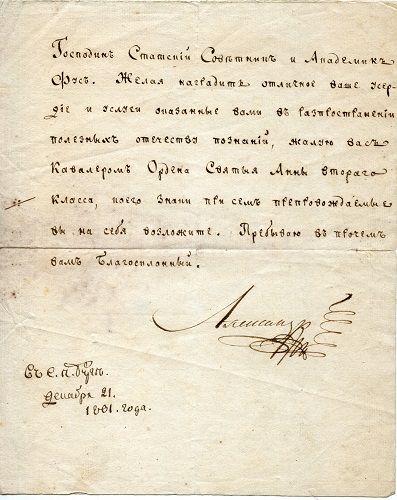 Господинъ Статскій Совѣтникъ и Академикъ
Фусъ. Желая наградить отличное ваше усер-
діе и услуги оказанные вами въ разпространеніи
полезныхъ отечеству познаній, жалую васъ
Кавалеромъ Ордена Святыя Анны втораго
класса, коего знаки при семъ препровождаемые
вы на себя возложите. Пребываю въ прочемъ
вамъ Благосклонный.
Александръ
Въ С. П. Бургѣ
декабря 21.
1801. года.